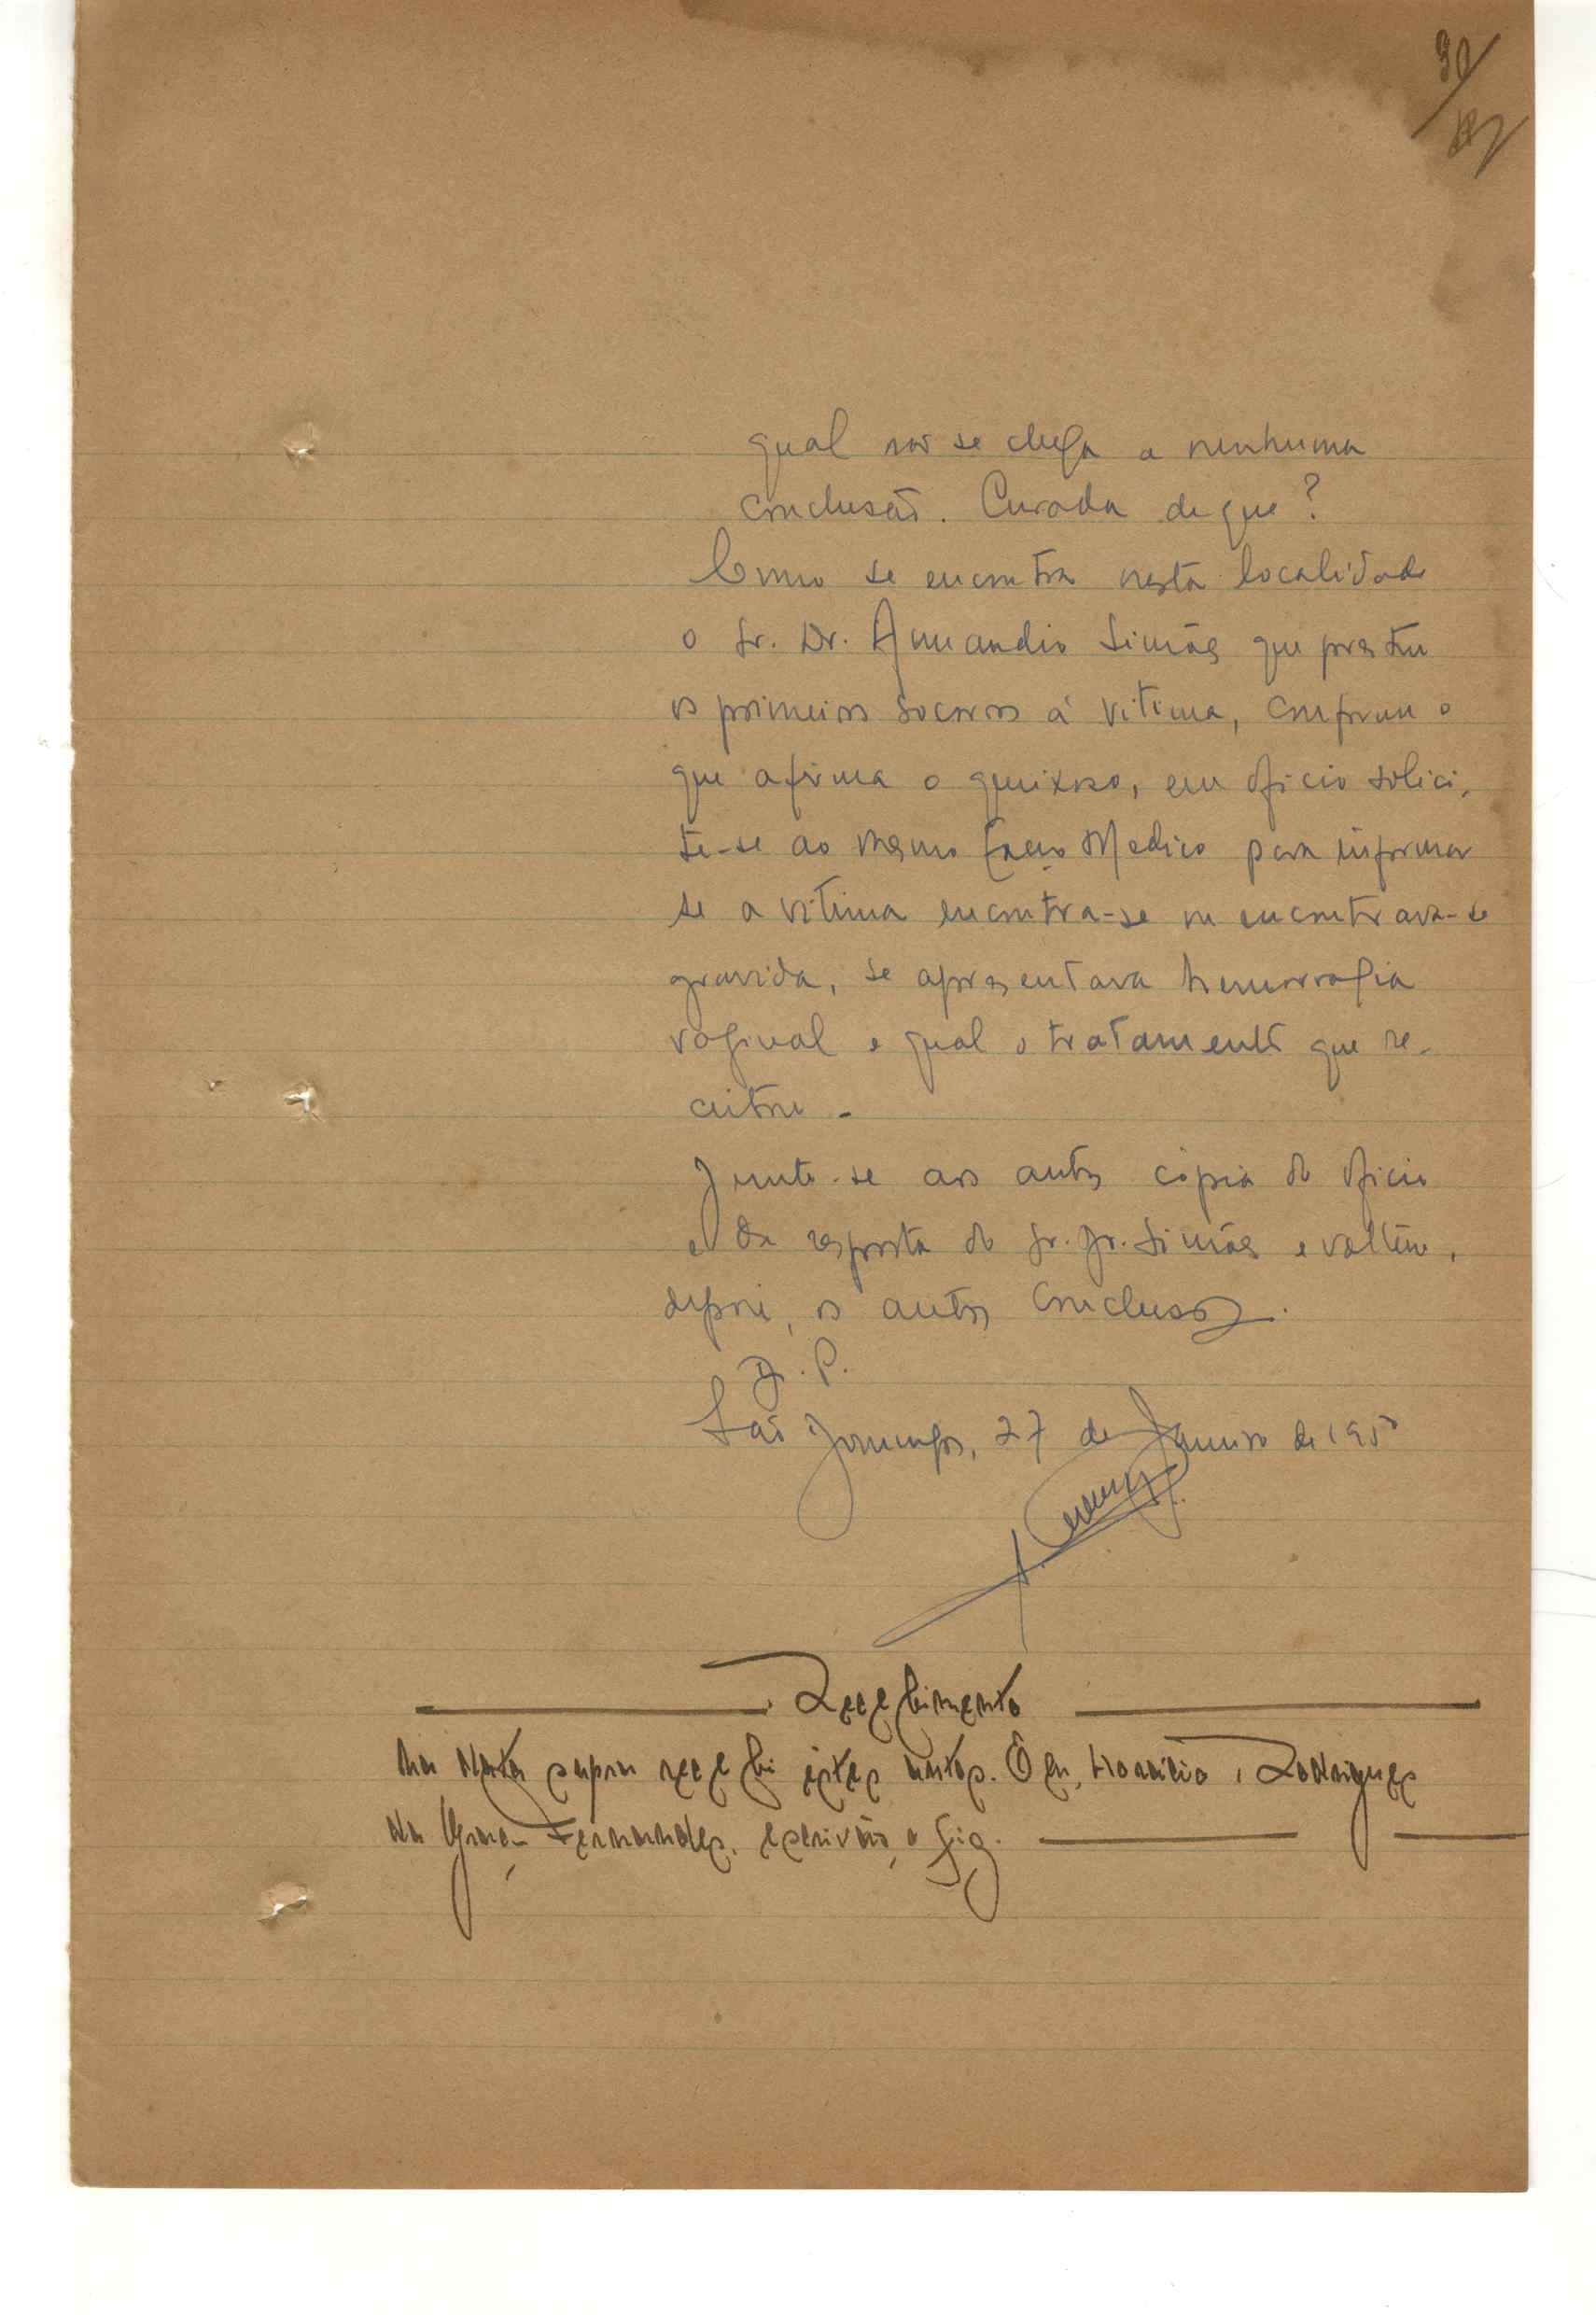 30
qual não se chega a nenhuma
conclusão. Curada de que?
Como se encontra nesta localidade
o Sr. Dr. Armandio Simões que prestou
os primeiros socorros á vitima, conforme o
que afirma o queixoso, em oficio solici-
te-se ao mesmo Exmo Medico para informar
se a vitima encontra-se ou encontrava-se
gravida, se apresentava hemorragia
vaginal e qual o tratamento que re-
ceitou.
Junte-se aos autos cópia do oficio
e da resposta do Sr. Dr. Simões e voltem,
depois, os autos conclusos.
D. P.
São Domingos, 27 de Janeiro de 1950
Recebimento
Na data supra recebi êstes autos. Eu, Horacio Rodrigues
da Graça Fernandes, escrivão, o fiz.